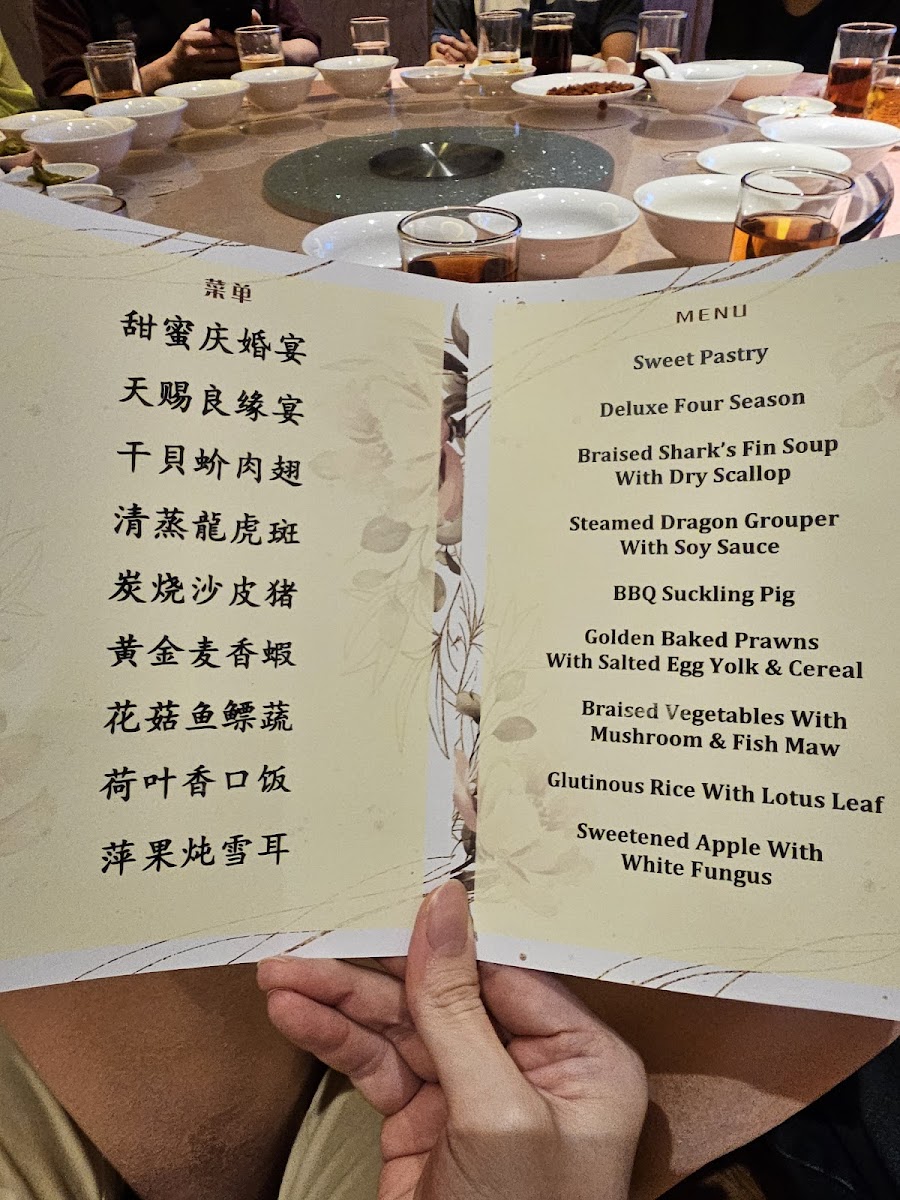 菜单
甜蜜庆婚宴
天赐良缘宴
干貝蚧肉翅
清蒸龍虎斑
炭烧沙皮猪
黄金麦香蝦
花菇鱼鳔蔬
荷叶香口饭
萍果炖雪耳
MENU
Sweet Pastry
Deluxe Four Season
Braised Shark's Fin Soup
With Dry Scallop
Steamed Dragon Grouper
With Soy Sauce
BBQ Suckling Pig
Golden Baked Prawns
With Salted Egg Yolk & Cereal
Braised Vegetables With
Mushroom & Fish Maw
Glutinous Rice With Lotus Leaf
Sweetened Apple With
White Fungus